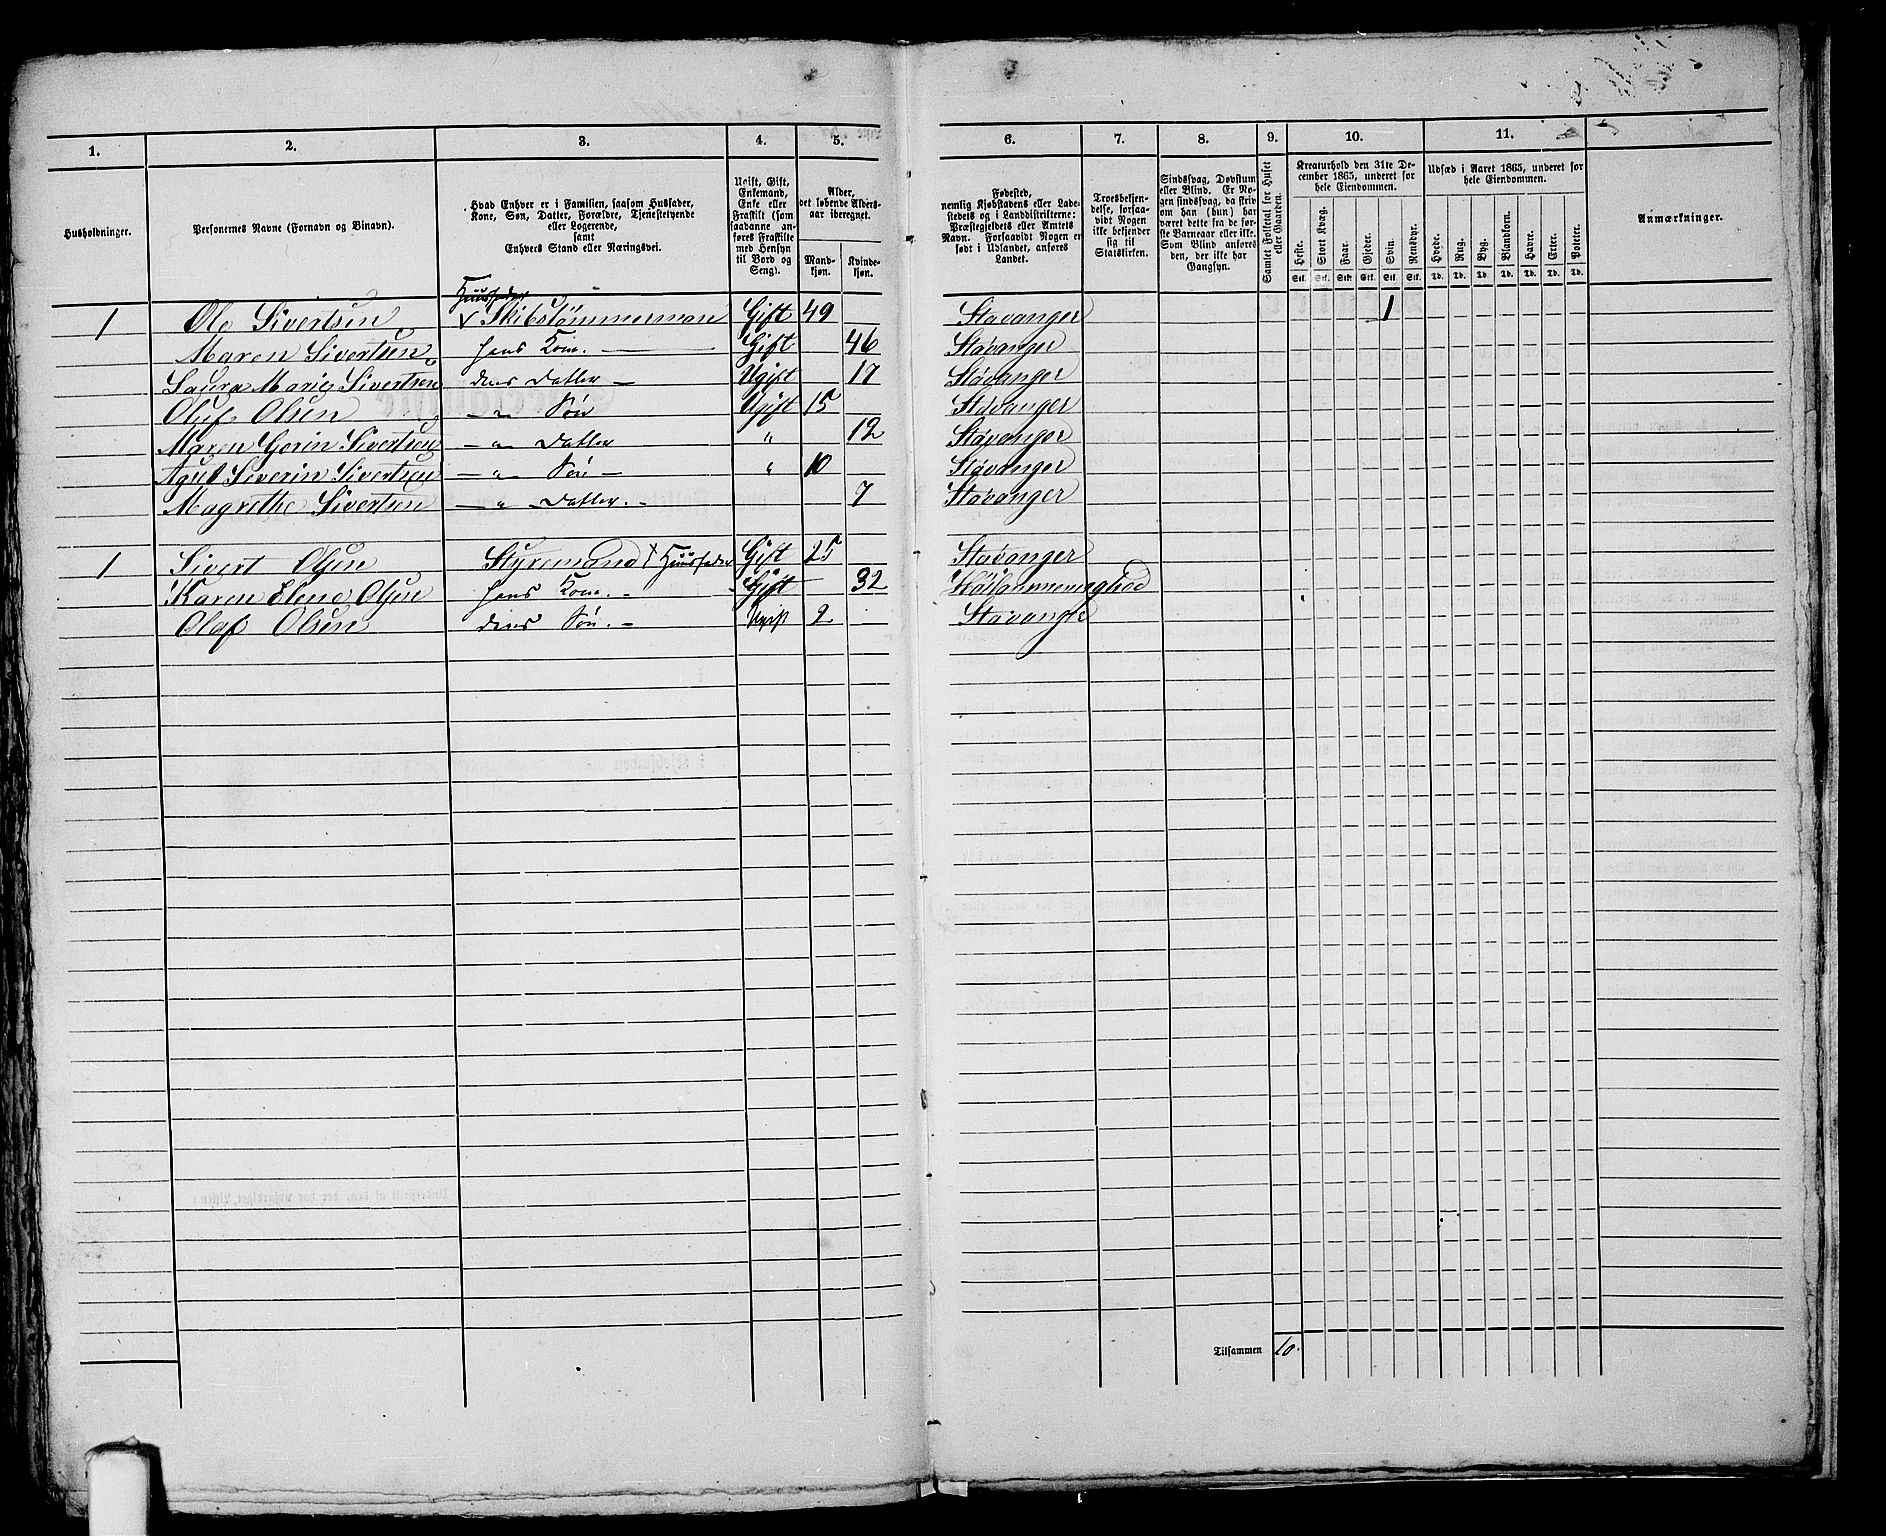 1. 2. 3. 4. 5. 6. 7. 8. 9. 10. 11.
Husholdninger.
Personernes Navne (Fornavn og Binavn).
Hvad Enhver er i Familien, saasom Husfader,
Kone, Søn, Datter, Forældre, Tjenestetyende
eller Logerende,
samt
Enhvers Stand eller Næringsvei.
Ugift, Gift,
Enkemand,
Enke eller
Fraskilt (som
saadanne an-
føres Fraskilte
med Hensyn
til Bord og
Seng).
Alder,
det løbende Alders-
aar iberegnet.
Mand-
kjøn.
Kvinde-
kjøn.
Fødested,
nemlig Kjøbstadens eller Lade-
stedets og i Landdistrikterne:
Præstegjeldets eller Amtets
Navn. Forsaavidt Nogen er
født i Udlandet, anføres
Landet.
Troesbekjen-
delse, forsaa-
vidt Nogen
ikke bekjender
sig til
Statskirken.
Sindssvag, Døvstum
eller Blind. Er No-
gen sindssvag, da skriv
om han (hun) har
været dette fra de før-
ste Barneaar eller ikke.
Som Blind anføres
den, der ikke har
Gangsyn.
Samlet Folketal for Huset
eller Gaarden.
Kreaturhold den 31te De-
cember 1865, underet for
hele Eiendommen.
Heste. Stort Kvæg. Faar. Gjeder. Svin. Rensdyr.
Stk. Stk. Stk. Stk. Stk. Stk.
Udsæd i Aaret 1865, underet for
hele Eiendommen.
Hvede. Rug. Byg. Blandkorn. Havre. Erter. Poteter.
Td. Td. Td. Td. Td. Td. Td.
Anmærkninger.
Huusfader
1 Ole Sivertsen Skibstømmerman Gift 49 Stavanger 1
Maren Sivertsen hans Kone. Gift 46 Stavanger
Laura Marie Sivertsen deres Datter Ugift 17 Stavanger
Oluf Olsen — " — Søn Ugift 15 Stavanger
Maren Gorin Sivertsen — " — Datter " 12 Stavanger
Severin Sivertsen — " — Søn — " 10 Stavanger
Magrethe Sivertsen — " — Datter. — 7 Stavanger
1 Sivert Olsen Styremand Huusfader Gift 25 Stavanger
Karen Elene Olsen hans Kone. — Gift 32
Olaf Olsen deres Søn. — Ugift 2 Stavanger
Tilsammen 10.